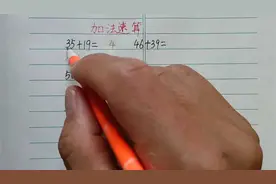 加法速算
35+19= 4 46+39=
5